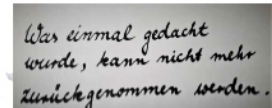 Was einmal gedacht
wurde, kann nicht mehr
zurückgenommen werden.